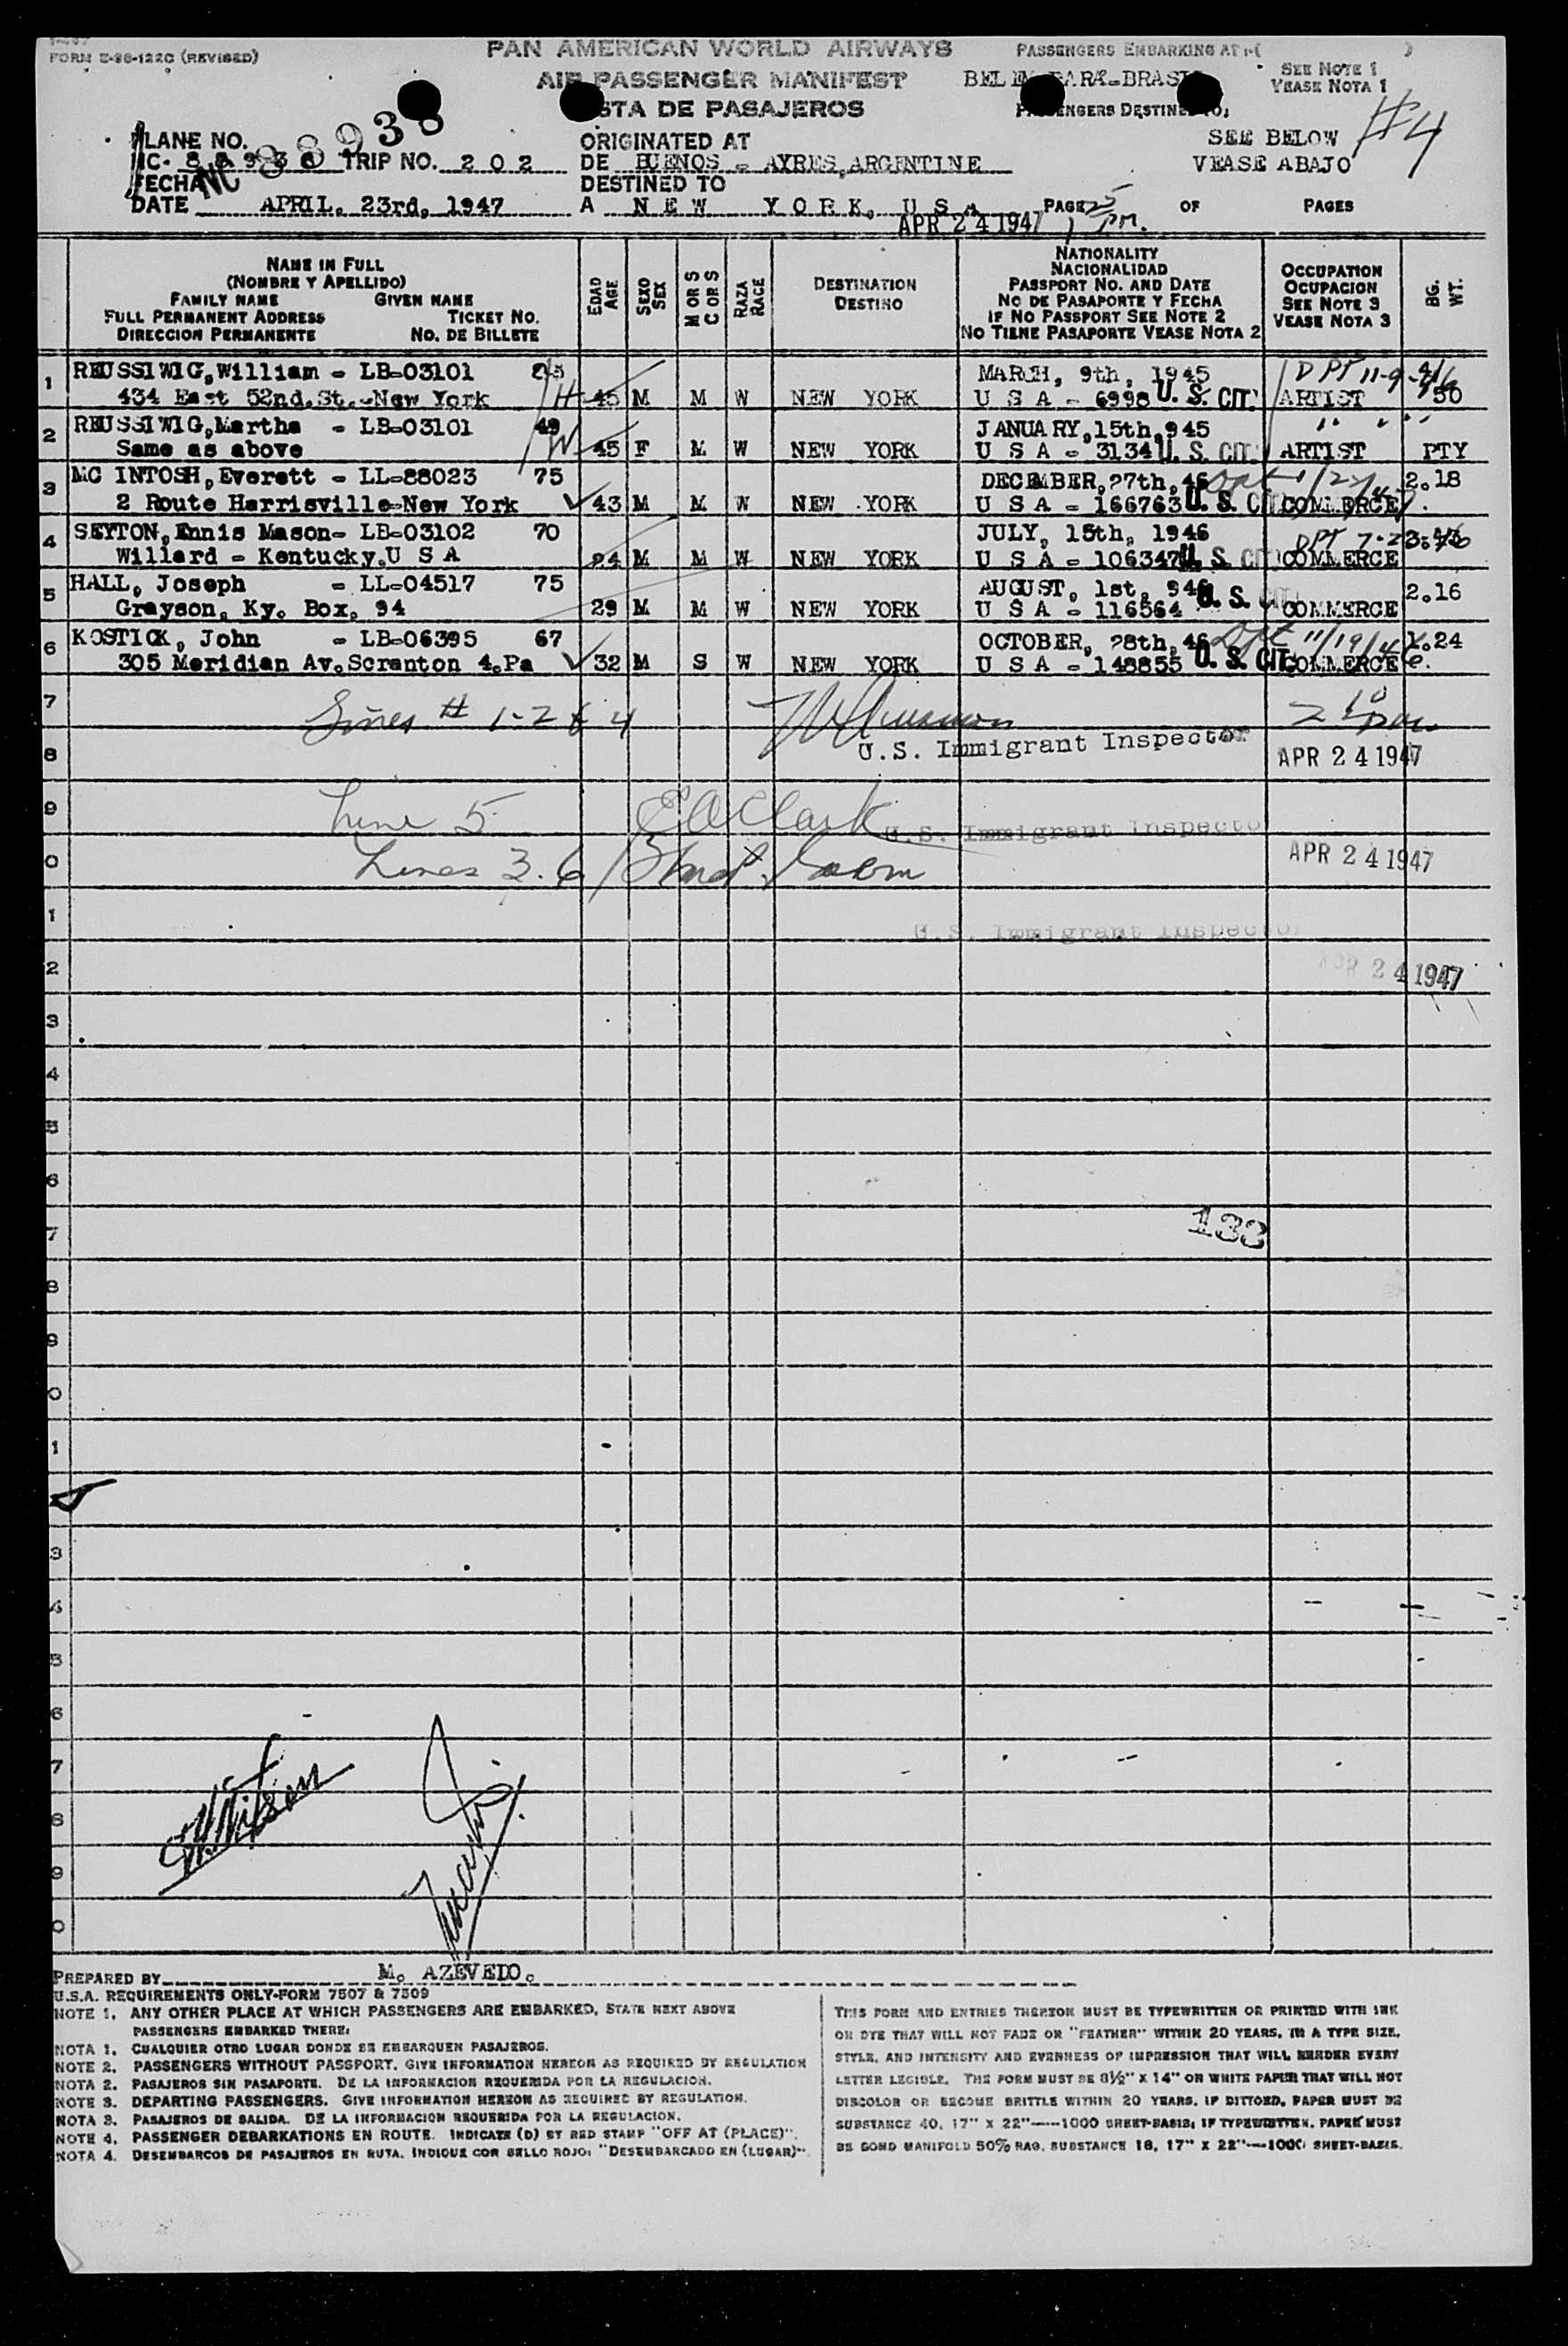 FORM E-96-122C (REVISED)
PAN AMERICAN WORLD AIRWAYS
AIR PASSENGER MANIFEST
STA DE PASAJEROS
PASSENGERS EMBARKING AT
SEE NOTE 1
VEASE NOTA 1
SEE BELOW
VEASE ABAJO
#4
LANE NO.
TRIP NO. 2 0 2
88938
FECHA
DATE APRIL, 23rd, 1947
ORIGINATED AT
DE BUENOS - AYRES, ARGENTINE
DESTINED TO
A N E W Y O R K, U S A
APR 24 1947
PAGE OF PAGES
NAME IN FULL
(NOMBRE Y APELLIDO)
FAMILY NAME GIVEN NAME
FULL PERMANENT ADDRESS TICKET NO.
DIRECCION PERMANENTE NO. DE BILLETE
EDAD
AGE
SEXO
SEX
M OR S
C OR S
RAZA
RACE
DESTINATION
DESTINO
NATIONALITY
NACIONALIDAD
PASSPORT NO. AND DATE
NO DE PASAPORTE Y FECHA
IF NO PASSPORT SEE NOTE 2
NO TIENE PASAPORTE VEASE NOTA 2
OCCUPATION
OCUPACION
SEE NOTE 3
VEASE NOTA 3
BG.
WT.
1 REUSSIWIG, William - LB-03101 MARCH, 9th, 1945 DPT 11-9-46
434 East 52nd. St.-New York H 45 M M W NEW YORK U S A - 6998 U. S. CIT. ARTIST 50
2 REUSSIWIG, Martha - LB-03101 49 JANUARY, 15th, 945
Same as above W 45 F M W NEW YORK U S A - 3134 U. S. CIT. ARTIST PTY
3 MC INTOSH, Everett - LL-88023 75 DECEMBER, 27th, 46 2.18
2 Route Harrisville-New York 43 M M W NEW YORK U S A - 166763 U. S. CIT COMMERCE
4 SEYTON, Ennis Mason- LB-03102 70 JULY, 15th, 1946
Willard - Kentucky. U S A 24 M M W NEW YORK U S A - 106347 U. S. CIT COMMERCE
5 HALL, Joseph - LL-04517 75 AUGUST, 1st, 946 2.16
Grayson, Ky. Box, 94 29 M M W NEW YORK U S A - 116564 U. S. CIT COMMERCE
6 KOSTICK, John - LB-06395 67 OCTOBER, 28th, 46 Dpt 11/19/46 1.24
305 Meridian Av. Scranton 4. Pa 32 M S W NEW YORK U S A - 148855 U. S. CIT. COMMERCE
7 Lines # 1-2 & 4
8 U.S. Immigrant Inspector APR 24 1947
9 Line 5 E A Clark U.S. Immigrant Inspecto
0 Lines 3. 6 APR 24 1947
1 U.S. Immigrant Inspector
2 APR 24 1947
3
4
5
6
7 133
8
9
0
1
3
4
5
6
7
8
9
0
PREPARED BY M. AZEVEDO.
U.S.A. REQUIREMENTS ONLY-FORM 7507 & 7509
NOTE 1. ANY OTHER PLACE AT WHICH PASSENGERS ARE EMBARKED, STATE NEXT ABOVE
PASSENGERS EMBARKED THERE:
NOTA 1. CUALQUIER OTRO LUGAR DONDE SE EMBARQUEN PASAJEROS.
NOTE 2. PASSENGERS WITHOUT PASSPORT. GIVE INFORMATION HEREON AS REQUIRED BY REGULATION
NOTA 2. PASAJEROS SIN PASAPORTE. DE LA INFORMACION REQUERIDA POR LA REGULACION.
NOTE 3. DEPARTING PASSENGERS. GIVE INFORMATION HEREON AS REQUIRED BY REGULATION.
NOTA 3. PASAJEROS DE SALIDA. DE LA INFORMACION REQUERIDA POR LA REGULACION.
NOTE 4. PASSENGER DEBARKATIONS EN ROUTE. INDICATE (D) BY RED STAMP "OFF AT (PLACE)".
NOTA 4. DESEMBARCOS DE PASAJEROS EN RUTA. INDIQUE CON SELLO ROJO: "DESEMBARCADO EN (LUGAR)".
THIS FORM AND ENTRIES THEREON MUST BE TYPEWRITTEN OR PRINTED WITH INK
OR DYE THAT WILL NOT FADE OR "FEATHER" WITHIN 20 YEARS, IN A TYPE SIZE,
STYLE, AND INTENSITY AND EVENNESS OF IMPRESSION THAT WILL RENDER EVERY
LETTER LEGIBLE. THE FORM MUST BE 8½" X 14" ON WHITE PAPER THAT WILL NOT
DISCOLOR OR BECOME BRITTLE WITHIN 20 YEARS. IF DITTOED, PAPER MUST BE
SUBSTANCE 40, 17" X 22"----1000 SHEET-BASIS; IF TYPEWRITTEN, PAPER MUST
BE BOND MANIFOLD 50% RAG, SUBSTANCE 16, 17" X 22"---1000 SHEET-BASIS.